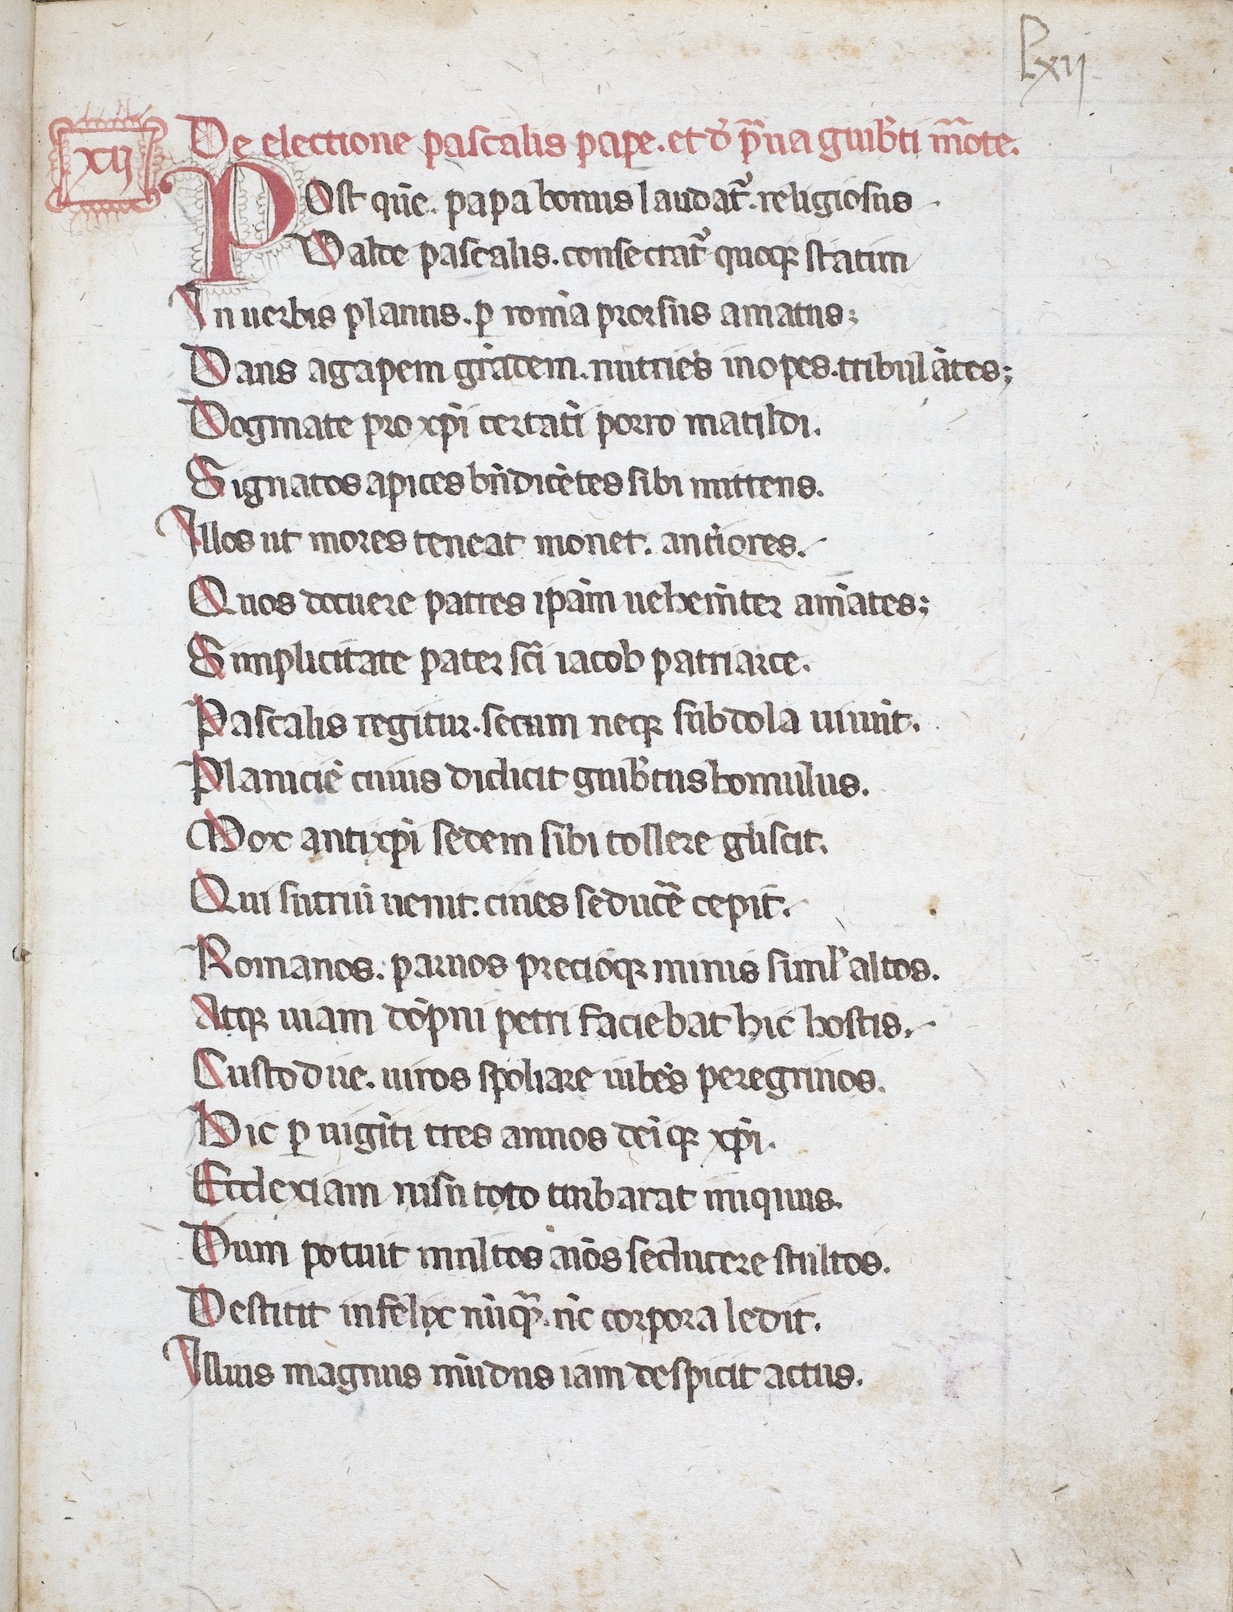 Lxij
xij
De electione pascalis pape. et d̄ p̄ua guib̄ti m̄ote.
Post quē. papa bonus laudat᷑. religiosus
Valde pascalis. consecrat᷑ quoqꝫ statim
In uerbis planus. ꝑ romā prorsus amatus;
Dans agapem grādem. nutriēs inopes. tribulātes;
Dogmate pro xp̄i certāti porro matildi.
Signatos apices bn̄dicētes sibi mittens.
Illos ut mores teneat monet. antiores.
Quos docuere patres ip̄am uehemīter amātes;
Simplicitate pater sc̄i iacob patriarce.
Pascalis regitur. secum neqꝫ subdola uiuūt.
Planiciē cuius didicit guib̄tus homulus.
Mox antixp̄i sedem sibi tollere gliscit.
Qui sutriū uenit. ciues seducē̄ cepit.
Romanos. paruos precioqꝫ minis siml̄ altos.
Atqꝫ uiam dōpni petri faciebat hic hostis.
Custodire. uiros spoliare iubēs peregrinos.
Hic ꝑ uigīti tres annos deīqꝫ xp̄i.
Ecclexiam nisu toto turbarat iniquus.
Dum potuit multos aīos seducere stultos.
Destitit infelix nūqᷓ. nc̄ corpora ledit.
Illius magnus mūdus iam despicit actus.